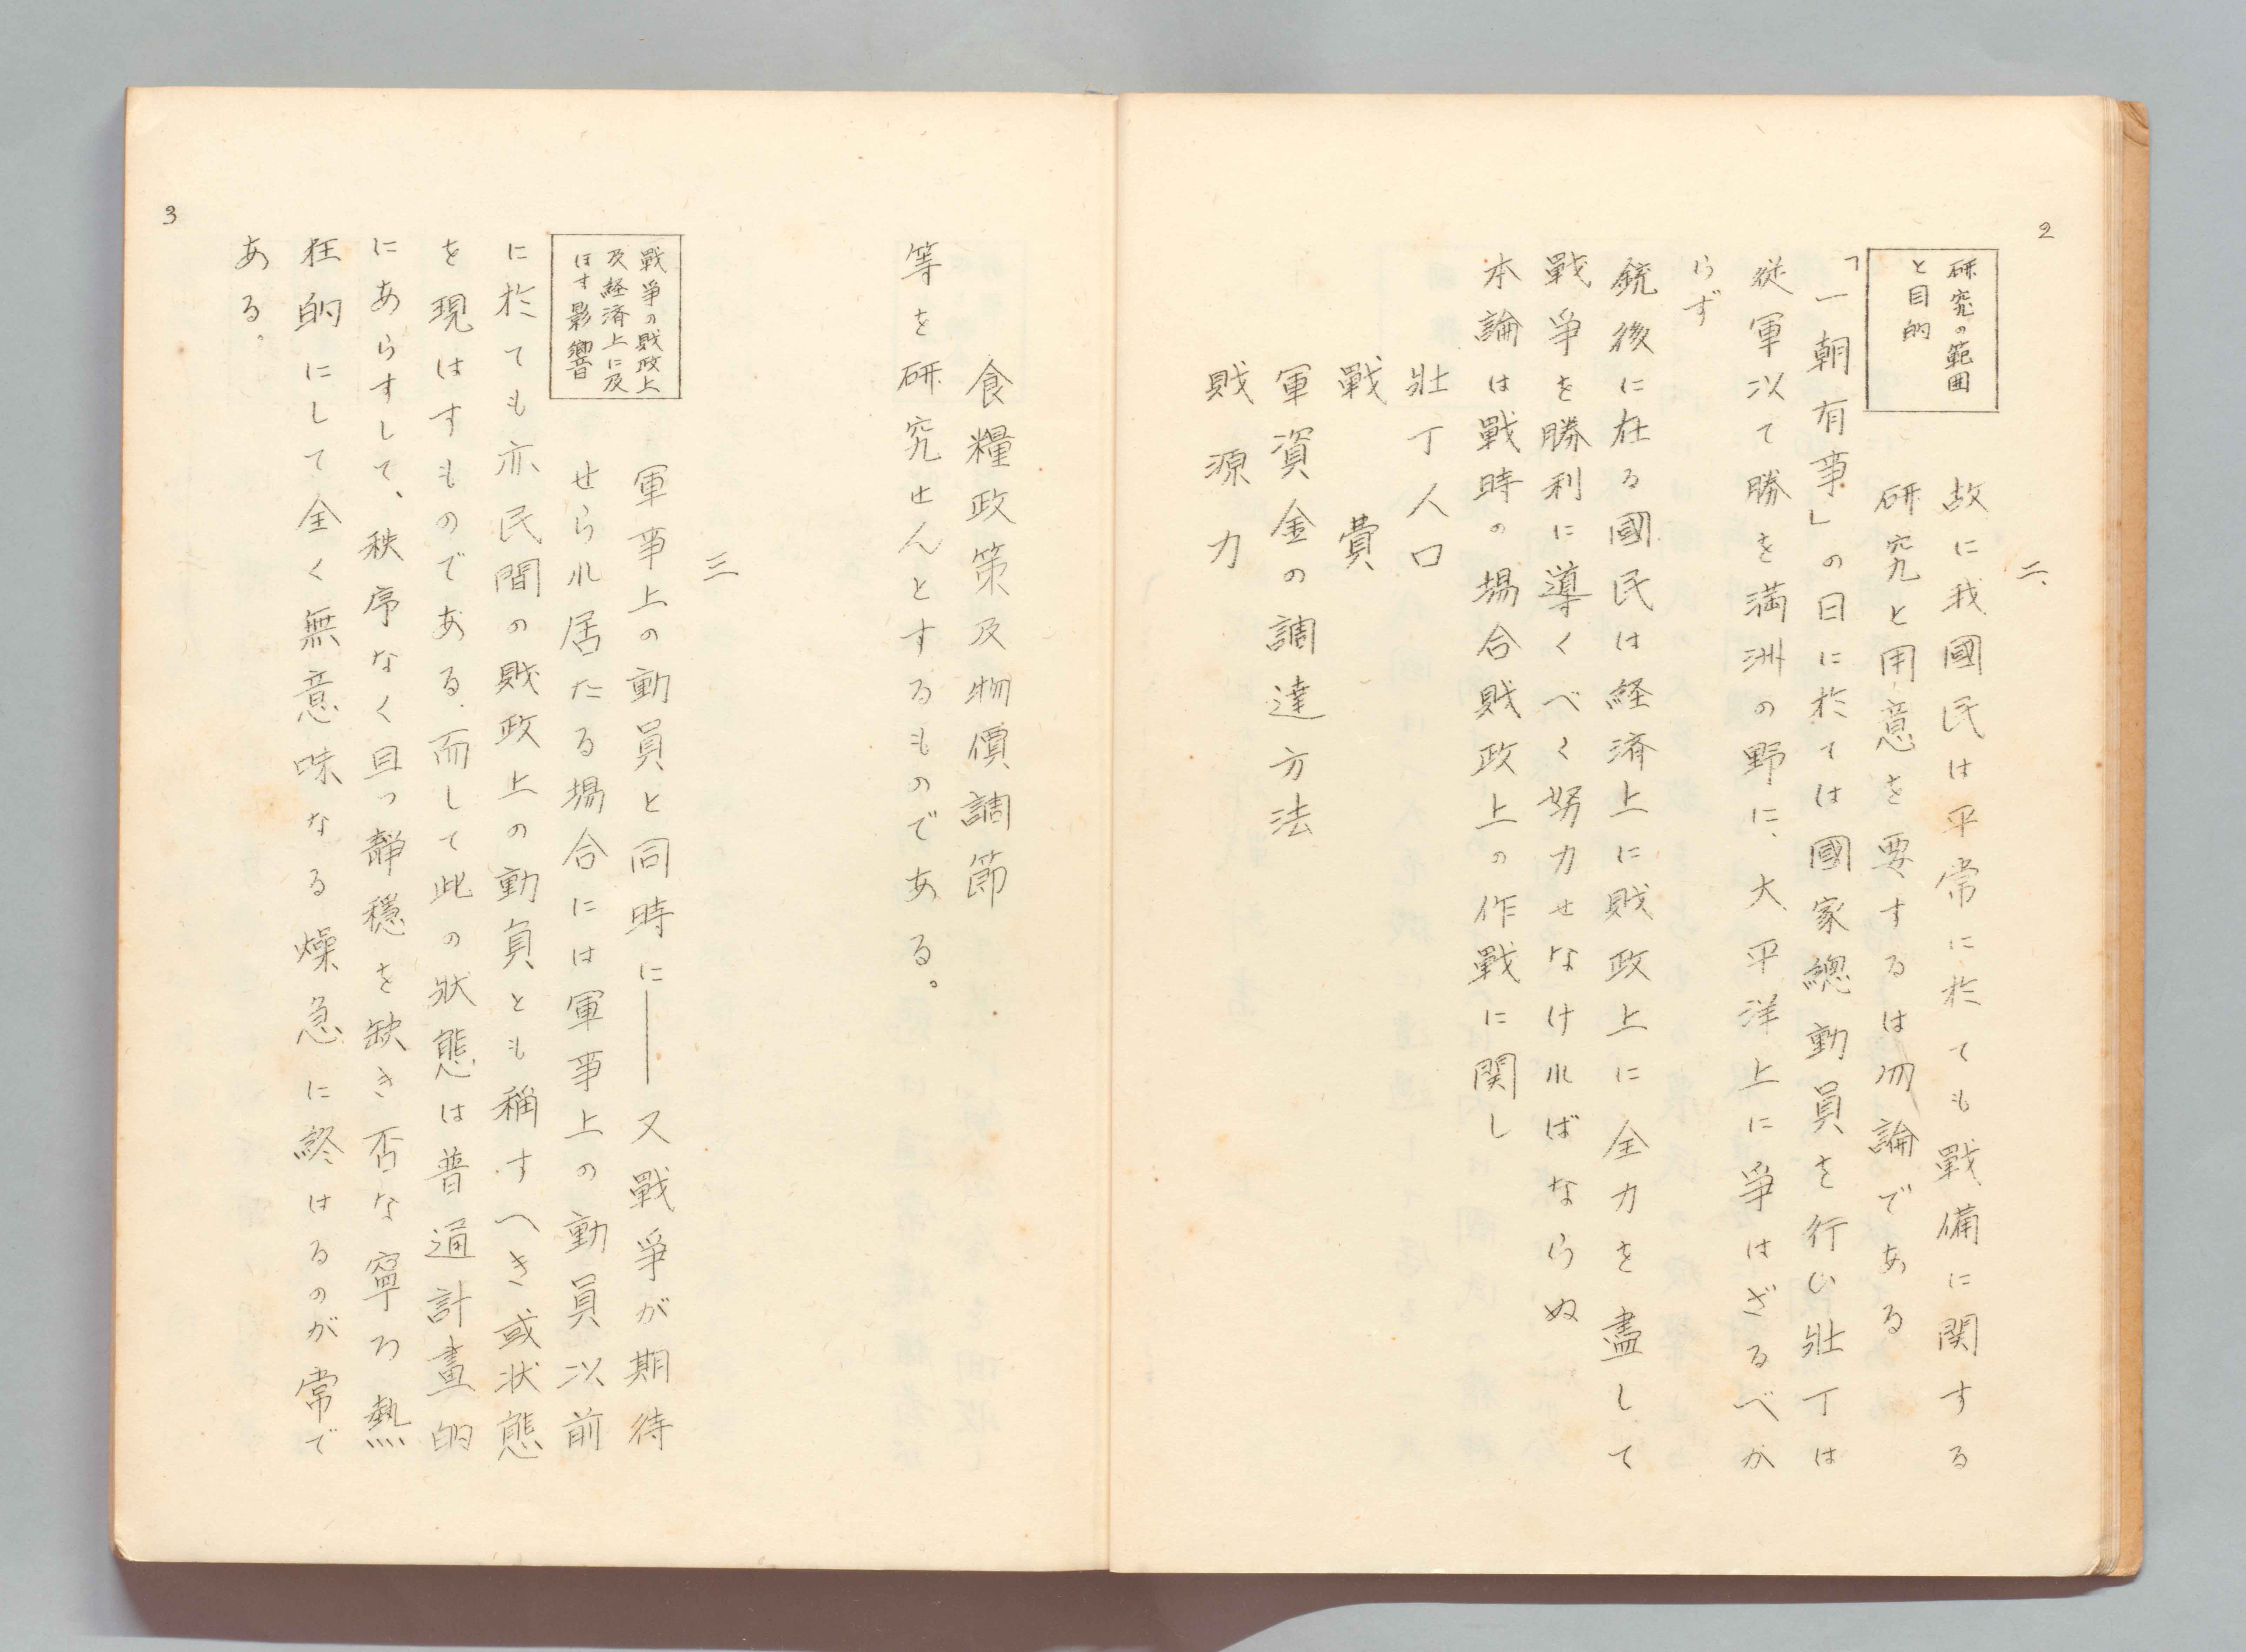 2
二、
研究の範囲
と目的
故に我國民は平常に於ても戰備に関する
研究と用意を要するは勿論である
「一朝有事」の日に於ては國家總動員を行い壯丁は
從軍以て勝を満洲の野に、大平洋上に爭はざるべか
らず
銃後に在る國民は経済上に財政上に全力を盡して
戰爭を勝利に導くべく努力せなければならぬ
本論は戰時の場合財政上の作戰に関し
壯丁人口
戰費
軍資金の調達方法
財源力
食糧政策及物價調節
等を研究せんとするものである。
三
戰爭の財政上
及経済上に及
ほす影響
軍事上の動員と同時に――又戰爭が期待
せられ居たる場合には軍事上の動員以前
に於ても亦民間の財政上の動員とも稱すへき或状態
を現はすものである.而して此の狀態は普通計畫的
にあらすして、秩序なく且つ靜穩を缺き否な寧ろ熱
狂的にして全く無意味なる燥急に終はるのが常で
ある。
3